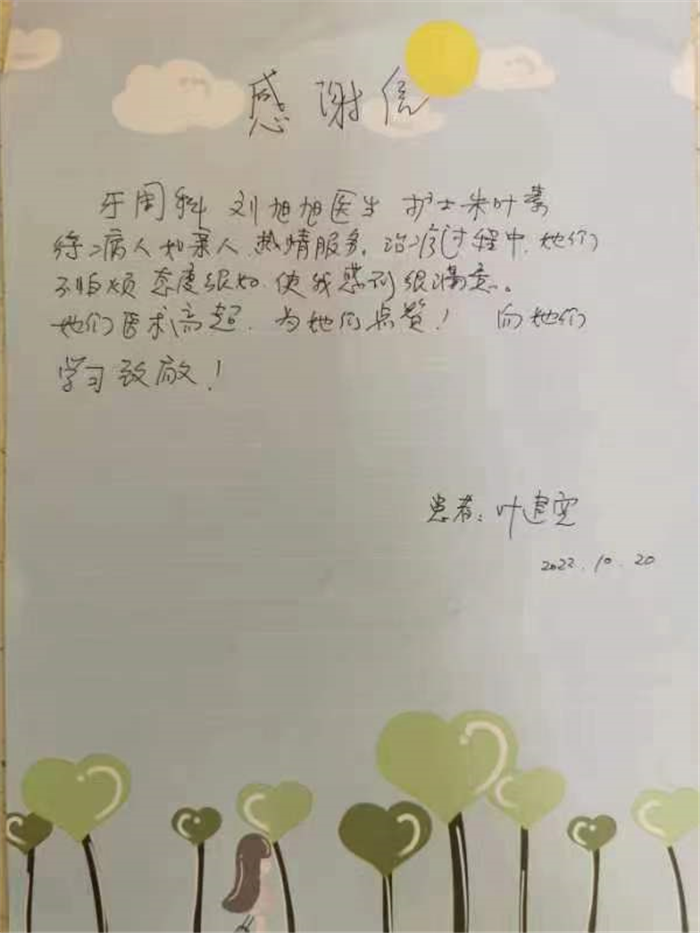 感谢信
牙周科 刘旭旭医生 护士朱叶青
待病人如亲人,热情服务,治疗过程中,她们
不怕烦 态度很好,使我感到很满意。
她们医术高超,为她们点赞! 向她们
学习致敬!
患者:叶建
2022.10.20